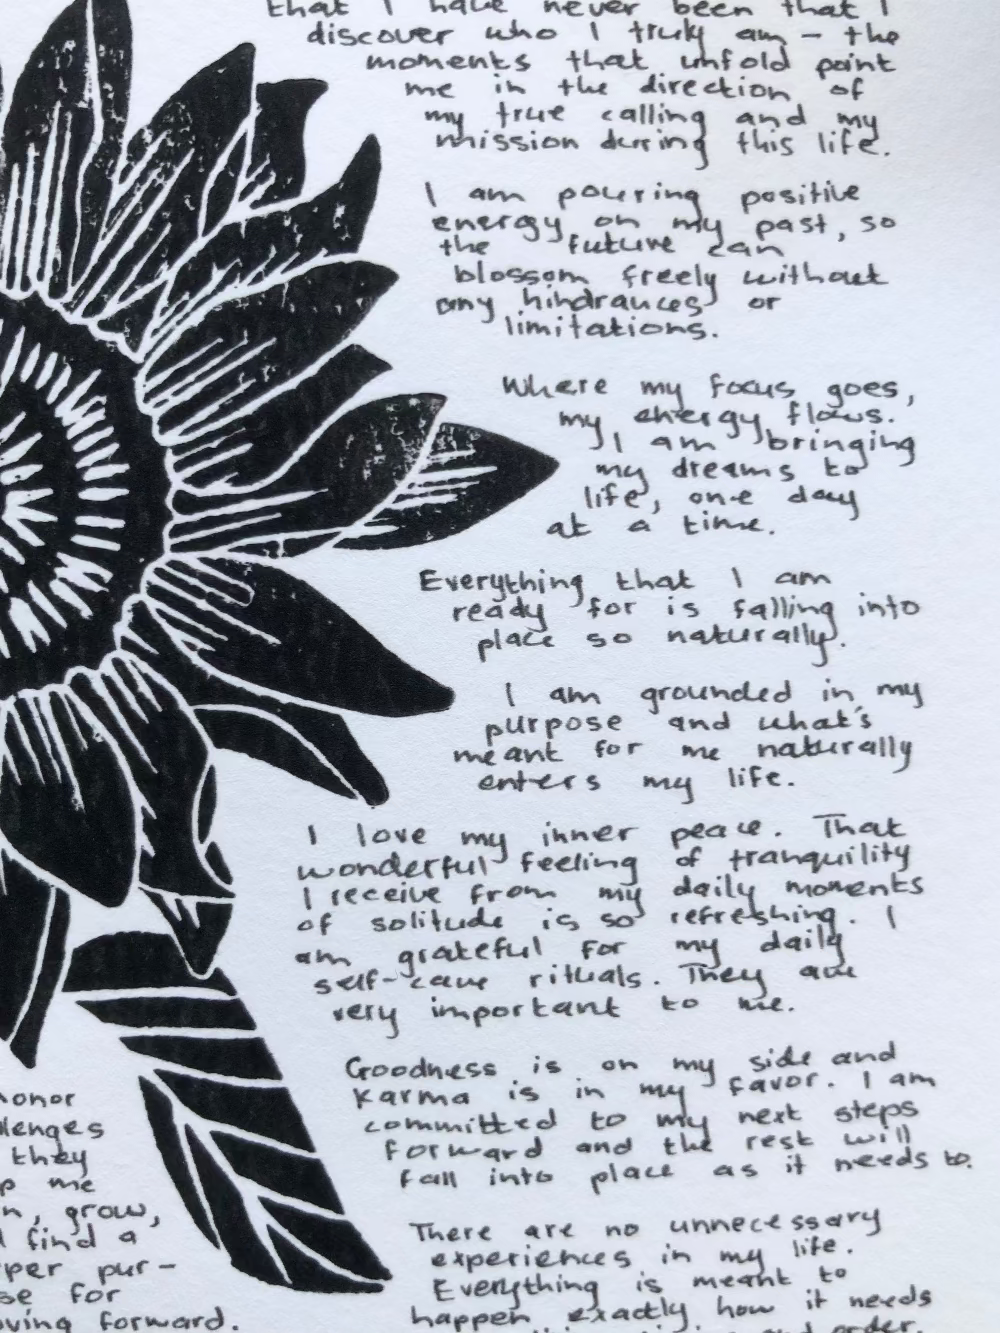 that I have never been that I
discover who I truly am - the
moments that unfold point
me in the direction of
my true calling and my
mission during this life.
I am pouring positive
energy on my past, so
the future can
blossom freely without
any hindrances or
limitations.
Where my focus goes,
my energy flows.
I am bringing
my dreams to
life, one day
at a time.
Everything that I am
ready for is falling into
place so naturally.
I am grounded in my
purpose and what's
meant for me naturally
enters my life.
I love my inner peace. That
wonderful feeling of tranquility
I receive from my daily moments
of solitude is so refreshing. I
am grateful for my daily
self-care rituals. They are
very important to me.
Goodness is on my side and
Karma is in my favor. I am
committed to my next steps
forward and the rest will
fall into place as it needs to.
There are no unnecessary
experiences in my life.
Everything is meant to
happen exactly how it needs
and order.
onor
lenges
they
p me
n, grow,
find a
per pur-
se for
ving forward.